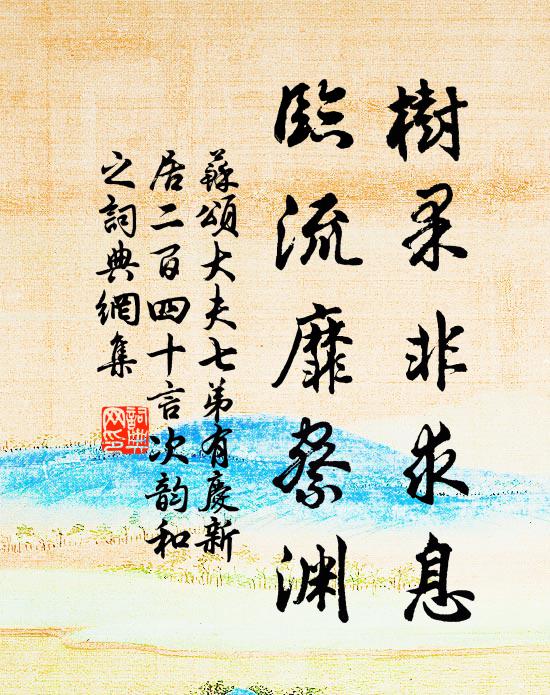 樹果非求息
臨流靡察淵
蘇頌大夫七弟有慶新
居二百四十言次韵和
之詞典網集
詞典
网印